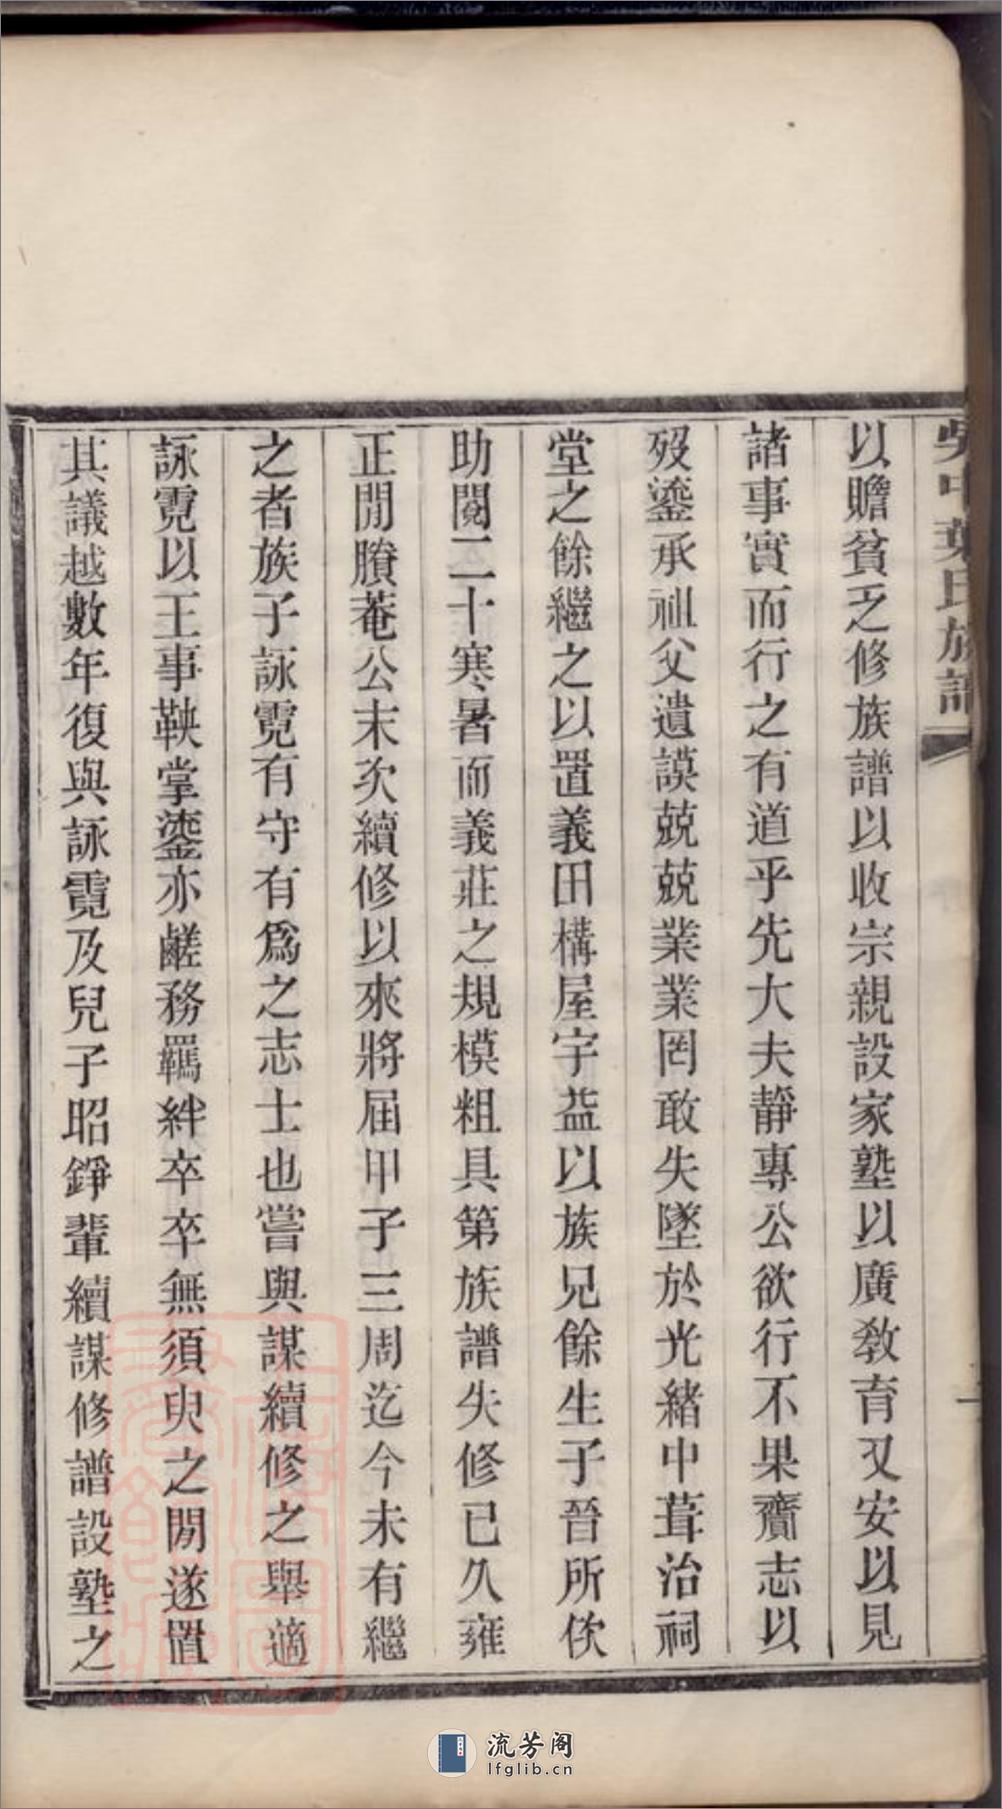 吳中葉氏族譜
以贍貧乏修族譜以收宗親設家塾以廣敎育又安以見
諸事實而行之有道乎先大夫靜專公欲行不果齎志以
歿鎏承祖父遺謨兢兢業業罔敢失墜於光緒中葺治祠
堂之餘繼之以置義田構屋宇益以族兄餘生子晉所佽
助閱二十寒暑而義莊之規模粗具第族譜失修已久雍
正閒賸菴公末次續修以來將屆甲子三周迄今未有繼
之者族子詠霓有守有爲之志士也嘗與謀續修之舉適
詠霓以王事鞅掌鎏亦鹺務羈絆卒卒無須臾之閒遂置
其議越數年復與詠霓及兒子昭錚輩續謀修譜設塾之
流芳阁
lfglib.cn